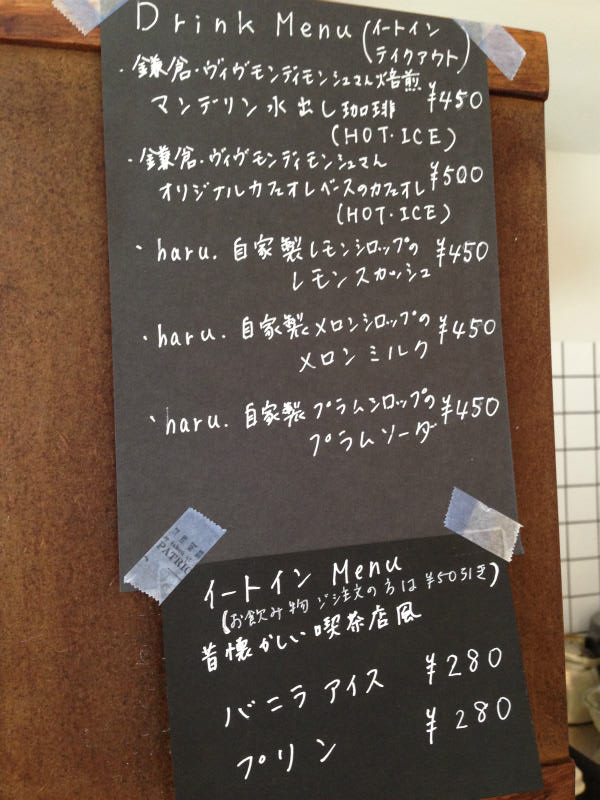 Drink Menu (イートイン
テイクアウト)
・鎌倉・ヴィヴモンディモンシュさん焙煎
マンデリン水出し珈琲 ¥450
(HOT・ICE)
・鎌倉・ヴィヴモンディモンシュさん
オリジナルカフェオレベースのカフェオレ ¥500
(HOT・ICE)
・haru. 自家製レモンシロップの ¥450
レモンスカッシュ
・haru. 自家製メロンシロップの ¥450
メロンミルク
・haru. 自家製プラムシロップの ¥450
プラムソーダ
PATRIC
イートイン Menu
(お飲み物ご注文の方は¥50引き)
昔懐かしい喫茶店風
バニラアイス ¥280
プリン ¥280